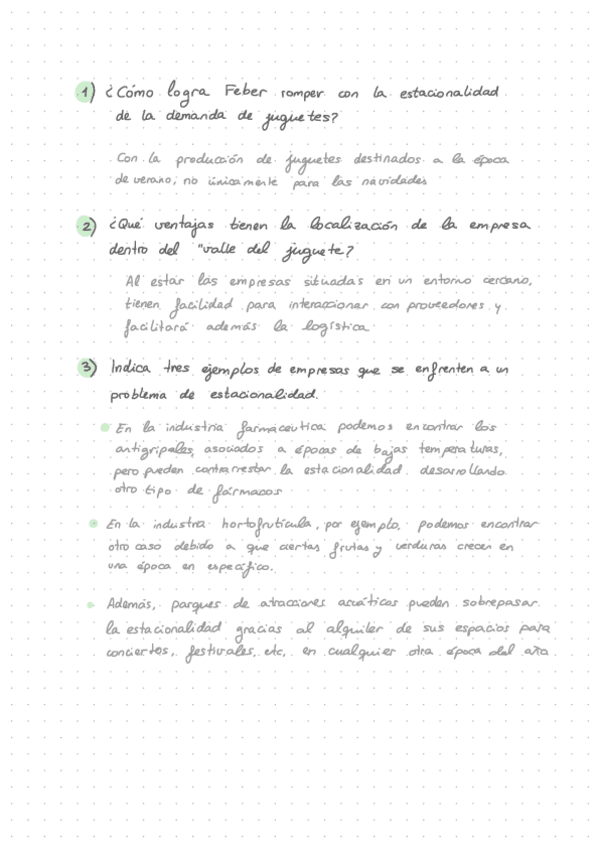 1) ¿Cómo logra Feber romper con la estacionalidad
de la demanda de juguetes?
Con la producción de juguetes destinados a la época
de verano, no únicamente para las navidades
2) ¿Qué ventajas tienen la localización de la empresa
dentro del "valle del juguete?
Al estar las empresas situadas en un entorno cercano,
tienen facilidad para interaccionar con proveedores y
facilitará además la logística
3) Indica tres ejemplos de empresas que se enfrenten a un
problema de estacionalidad.
En la industria farmaceutica podemos encontrar los
antigripales, asociados a épocas de bajas temperaturas,
pero pueden contrarrestar la estacionalidad desarrollando
otro tipo de fármacos
En la industria hortofrutícula, por ejemplo, podemos encontrar
otro caso debido a que ciertas frutas y verduras crecen en
una época en específico.
Además, parques de atracciones acuáticos pueden sobrepasar
la estacionalidad gracias al alquiler de sus espacios para
conciertos, festivales, etc, en cualquier otra época del año.